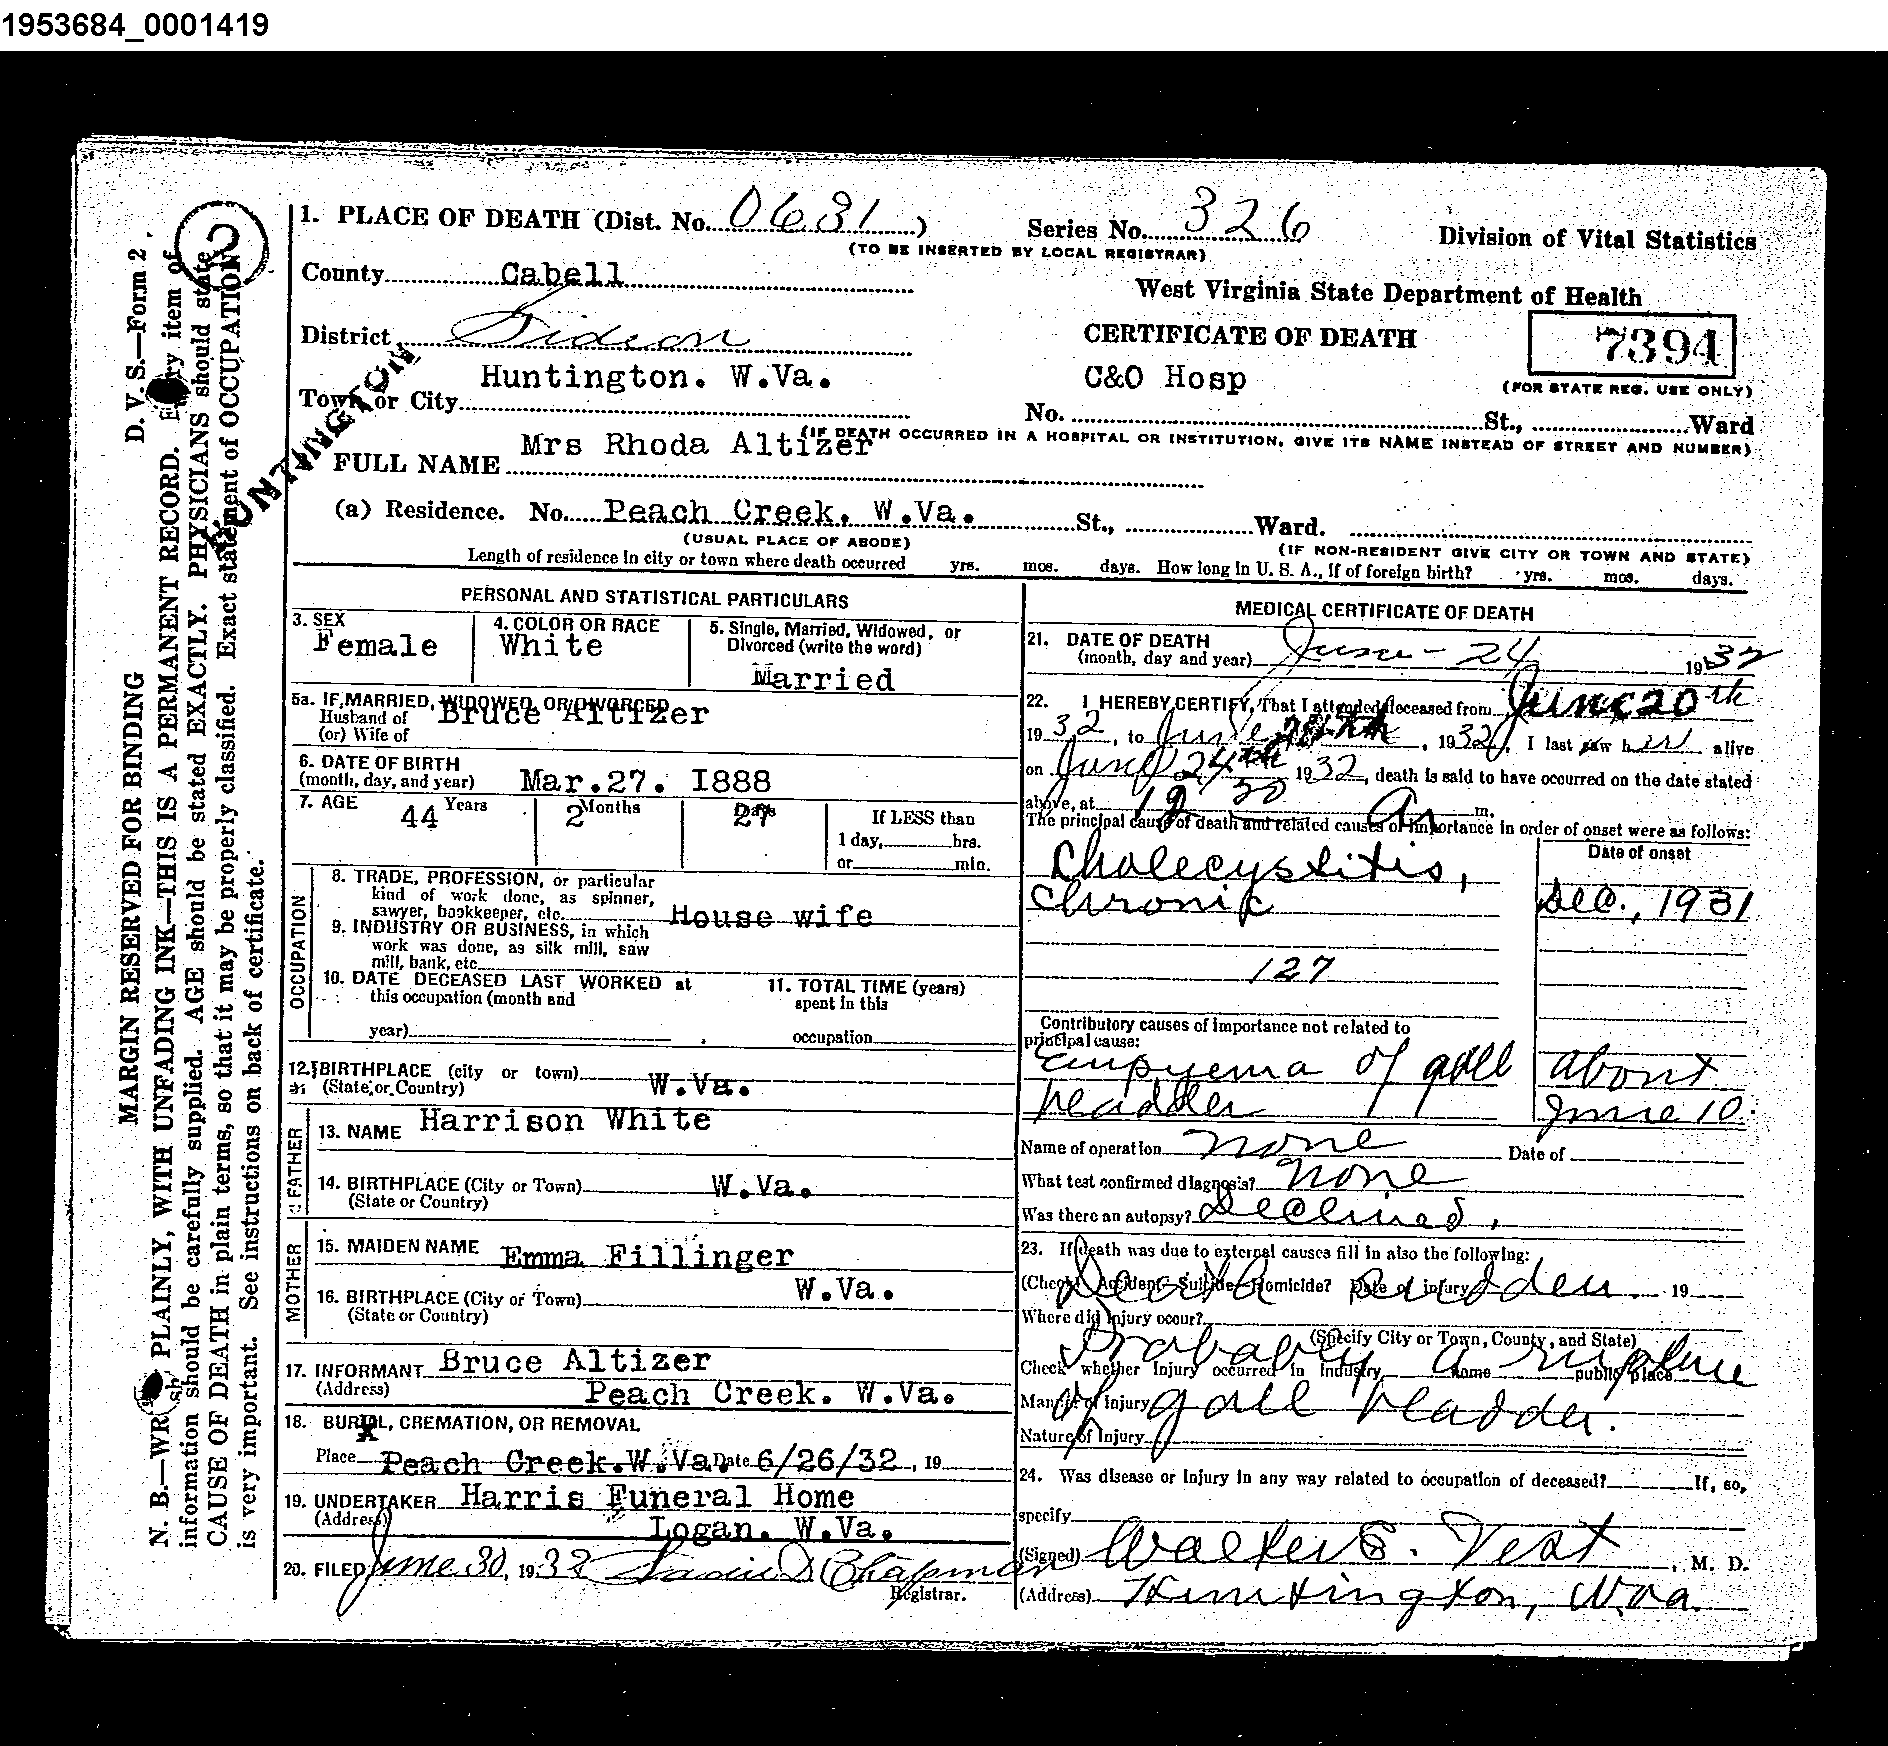 1953684_0001419
1. PLACE OF DEATH (Dist. No. 0631)
Series No. 326
(TO BE INSERTED BY LOCAL REGISTRAR)
Division of Vital Statistics
County Cabell
West Virginia State Department of Health
District Gideon
CERTIFICATE OF DEATH
7394
(FOR STATE REG. USE ONLY)
Town or City Huntington. W.Va.
C&O Hosp
No. St., Ward
(IF DEATH OCCURRED IN A HOSPITAL OR INSTITUTION, GIVE ITS NAME INSTEAD OF STREET AND NUMBER)
HUNTINGTON
FULL NAME Mrs Rhoda Altizer
(a) Residence. No. Peach Creek. W.Va. St., Ward.
(USUAL PLACE OF ABODE)
(IF NON-RESIDENT GIVE CITY OR TOWN AND STATE)
Length of residence in city or town where death occurred yrs. mos. days. How long in U. S. A., if of foreign birth? yrs. mos. days.
PERSONAL AND STATISTICAL PARTICULARS
3. SEX
Female
4. COLOR OR RACE
White
5. Single, Married, Widowed, or
Divorced (write the word)
Married
5a. IF MARRIED, WIDOWED, OR DIVORCED
Husband of
(or) Wife of
Bruce Altizer
6. DATE OF BIRTH
(month, day, and year) Mar.27. I888
7. AGE 44 Years 2 Months 27 Days
If LESS than
1 day, hrs.
or min.
OCCUPATION
8. TRADE, PROFESSION, or particular
kind of work done, as spinner,
sawyer, bookkeeper, etc. House wife
9. INDUSTRY OR BUSINESS, in which
work was done, as silk mill, saw
mill, bank, etc.
10. DATE DECEASED LAST WORKED at
this occupation (month and
year)
11. TOTAL TIME (years)
spent in this
occupation
12. BIRTHPLACE (city or town)
(State or Country) W.Va.
FATHER
13. NAME Harrison White
14. BIRTHPLACE (City or Town) W.Va.
(State or Country)
MOTHER
15. MAIDEN NAME Emma Fillinger
16. BIRTHPLACE (City or Town) W.Va.
(State or Country)
17. INFORMANT Bruce Altizer
(Address) Peach Creek. W.Va.
18. BURIAL, CREMATION, OR REMOVAL
X
Place Peach Creek.W.Va. Date 6/26/32, 19
19. UNDERTAKER Harris Funeral Home
(Address) Logan. W.Va.
20. FILED June 30, 1932 Chapman
Registrar.
MEDICAL CERTIFICATE OF DEATH
21. DATE OF DEATH
(month, day and year) June - 24 1932
22. I HEREBY CERTIFY, That I attended deceased from June 20th
1932, to June 24th, 1932, I last saw her alive
on June 24th 1932, death is said to have occurred on the date stated
above, at 12 30 A m.
The principal cause of death and related causes of importance in order of onset were as follows:
Date of onset
Cholecystitis,
Chronic Dec., 1931
127
Contributory causes of importance not related to
principal cause:
Empyema of gall about
bladder June 10.
Name of operation none Date of
What test confirmed diagnosis? none
Was there an autopsy? Declined.
23. If death was due to external causes fill in also the following:
(Check) Accident? Suicide? Homicide? Date of injury 19
Death sudden.
Where did injury occur?
(Specify City or Town, County, and State)
Probably a rupture
Check whether injury occurred in industry, home public place
Manner of injury
of gall bladder.
Nature of injury
24. Was disease or injury in any way related to occupation of deceased? If, so,
specify
(Signed) Walter S. Vest, M. D.
(Address) Huntington, W.Va.
D. V. S.—Form 2
MARGIN RESERVED FOR BINDING
N. B.—WRITE PLAINLY, WITH UNFADING INK—THIS IS A PERMANENT RECORD. Every item of
information should be carefully supplied. AGE should be stated EXACTLY. PHYSICIANS should state
CAUSE OF DEATH in plain terms, so that it may be properly classified. Exact statement of OCCUPATION
is very important. See instructions on back of certificate.